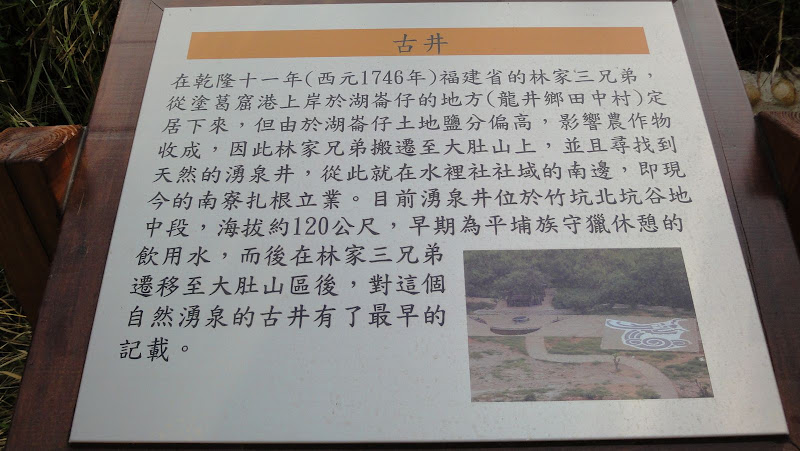 古井
在乾隆十一年(西元1746年)福建省的林家三兄弟，
從塗葛窟港上岸於湖崙仔的地方(龍井鄉田中村)定
居下來，但由於湖崙仔土地鹽分偏高，影響農作物
收成，因此林家兄弟搬遷至大肚山上，並且尋找到
天然的湧泉井，從此就在水裡社社域的南邊，即現
今的南寮扎根立業。目前湧泉井位於竹坑北坑谷地
中段，海拔約120公尺，早期為平埔族守獵休憩的
飲用水，而後在林家三兄弟
遷移至大肚山區後，對這個
自然湧泉的古井有了最早的
記載。